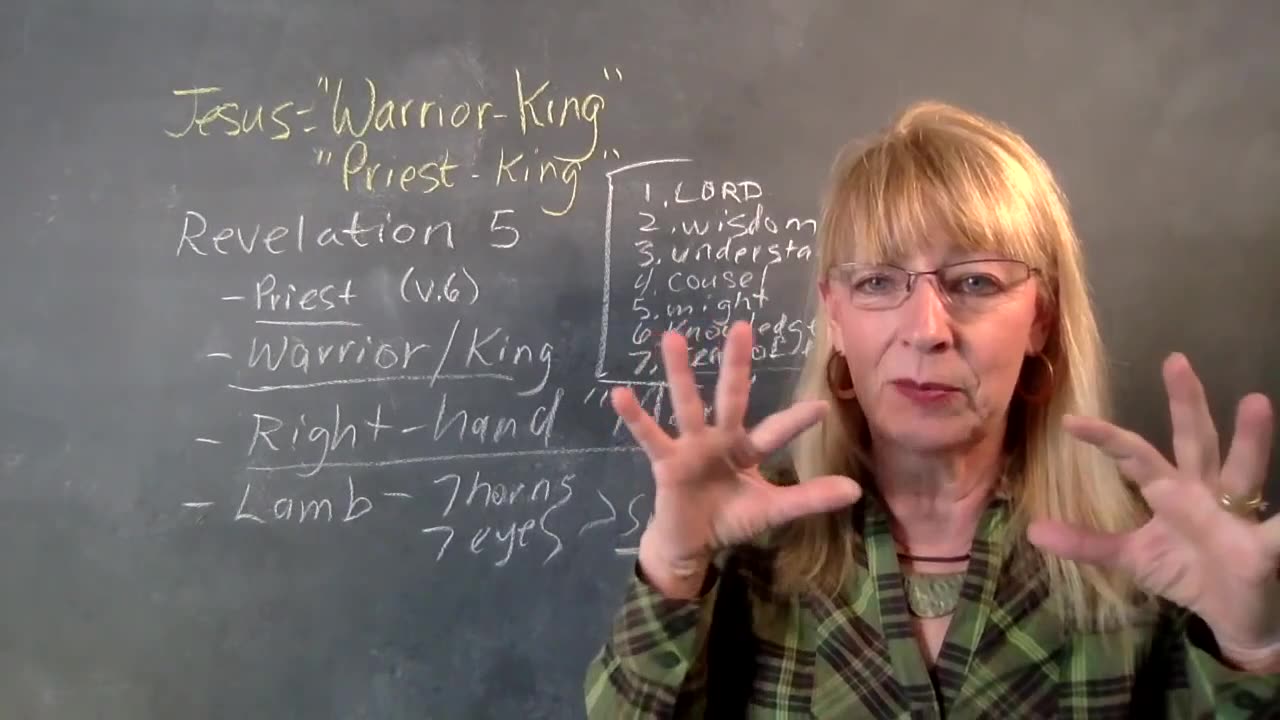 Jesus="Warrior-King"
"Priest-King"
Revelation 5
- Priest (v.6)
- Warrior/King
- Right-hand
- Lamb - 7 horns
7 eyes >
1. LORD
2. wisdom
3. understa
4. cousel
5. might
6. Knowledg
7.